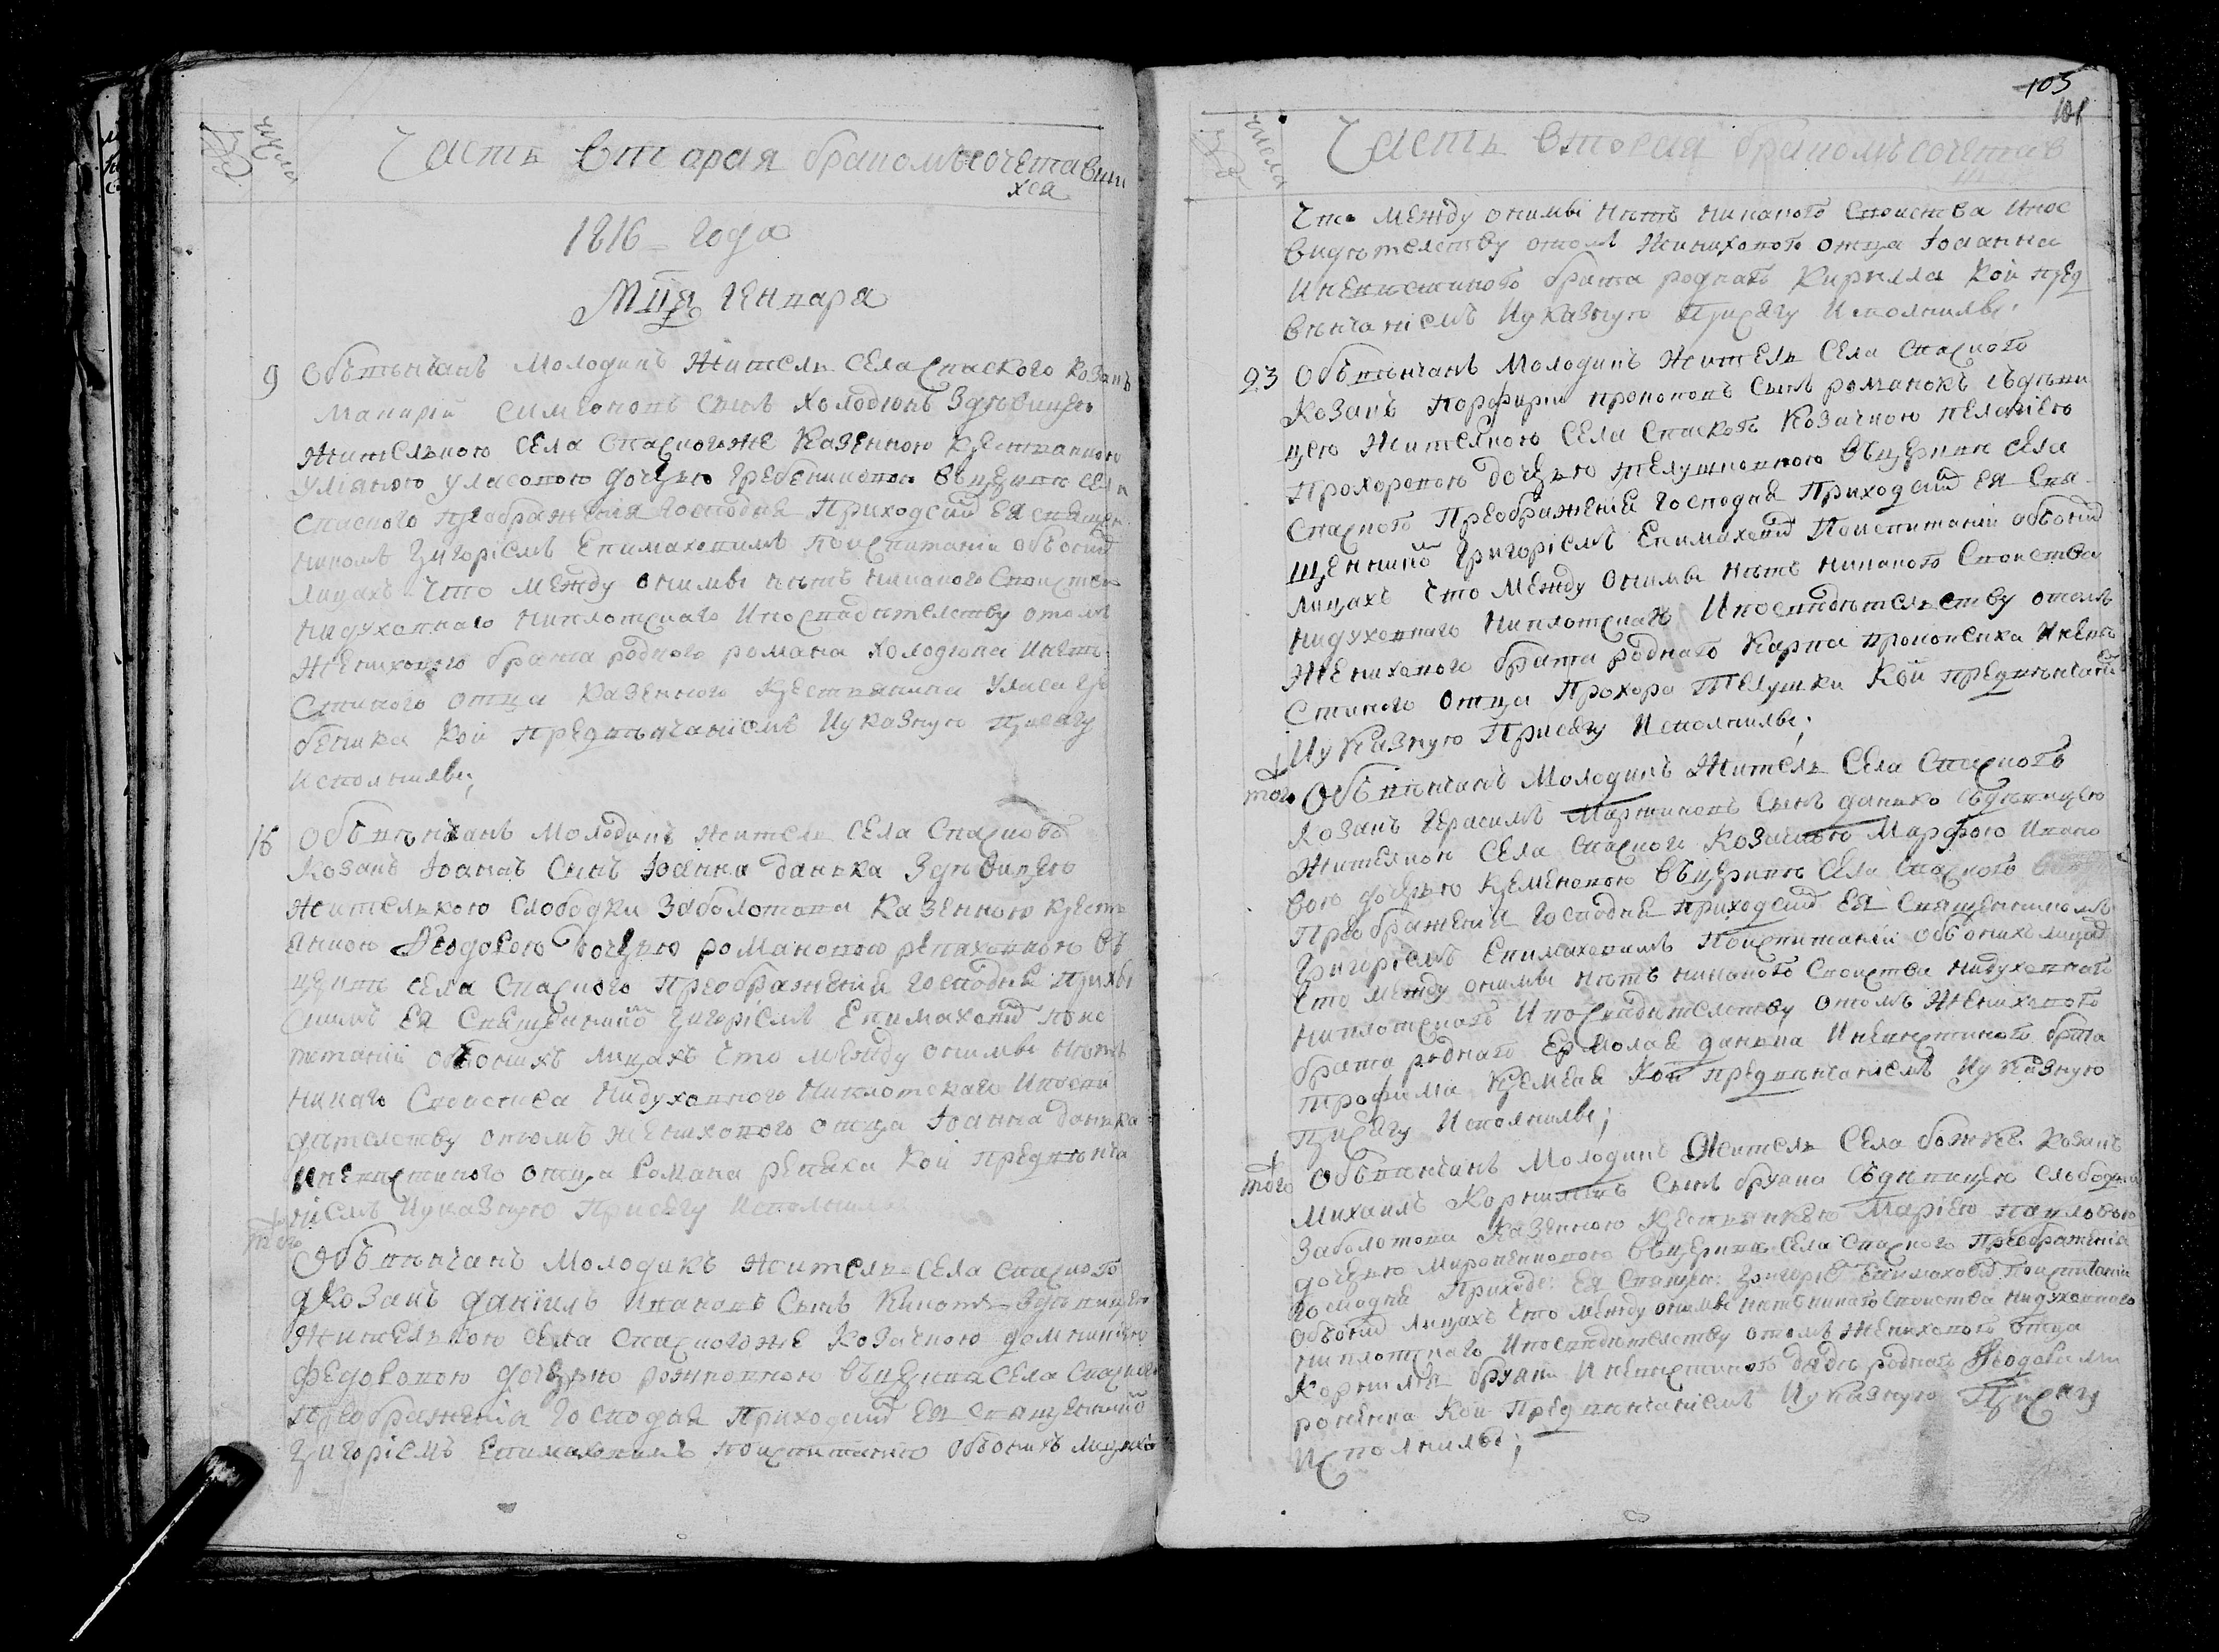 числа
Часть вторая бракомъсочетавши
хся
1816 = года
Мця генваря
9 Обвѣнчанъ молодикъ житель села Спаского козакъ
Макарій Симеоновъ сынъ Холодюкъ здѣвицею
жителькою села Спасногоже казенною крестянкою
Уліяною Уласовою дочерью Гребениковою вцеркви села
Спаского Преображенія Господня Приходсим ея священ
никомъ Григоріемъ Епимаховимъ поиспитаніи обоних
лицахъ что между онимы нетъ никакого своиства
нидуховнаго ниплотскаго ипосвидителству отомъ
жениховаго брата родного романа Холодюка иневѣ
стиного отца казенного крестянина Уласа Гре
беника кои предвѣнчаніемъ иуказную присягу
исполнилы;
16 Обвѣнчанъ молодикъ житель села Спаского
козакъ Іоанъ сынъ Іоанна данька здѣвицею
жителькою слободки Заболотова казенною крест
янкою Феодосею дочерью романовою репяховною въ
церкви села Спаского Преображенія Господня Прихо
скимъ ея Священнико Григоріемъ Епимахови поис
питаніи обонихъ лицахъ что между онимы нетъ
никако своиства нидуховного ниплотскаго ипосви
дителству отомъ жениховного отца Іоанна данька
иневистиного отца Романа репяха кои предвѣнча
ніемъ иуказную присягу исполнилы
того
Обвѣнчанъ молодикъ житель села Спаского
козакъ даніилъ Ивановъ сынъ здѣвицею
жителькою села Спаскогоже козачкою домникіею
федоровою дочерью вцеркви села Спаского
Преображенія Господня Приходсим ея священнико
Григоріемъ Епимаховимъ поиспитанію обонихъ лицахъ
105
101
числа
Часть вторая бракомъсочетав
ши
что между онимы нетъ никакого своиства ипос
видѣтелству отомъ жениховаго отца Іоанна
иневистиного брата роднаго Кирилла кои пред
вѣнчаніемъ иуказную присягу исполнилы;
23 Обвѣнчанъ молодикъ житель села Спаского
козакъ Порфирій Прокоповъ сынъ съдѣви
цею жителкою села Спаского козачкою Пелагіею
Прохоровою дочерью Телушковною въцеркви села
Спаского Преображенія Господня Приходсим ея Свя
щеннико Григоріемъ Епимахови поиспитаніи обоних
лицахъ что между онимы нетъ никакого своиства
нидуховнаго ниплотскаго ипосвидѣтельству отомъ
женихового брата роднаго Карпа иневе
стиного отца Прохора Телушки кои предвѣнчані
иуказную присягу исполнилы;
того Обвѣнчанъ молодикъ житель села Спаского
козакъ Герасимъ Мартиновъ сынъ данько съдѣвицею
жителкою села Спаского козачкою Марфою Ивано
вою дочерью Кременовою въцеркви села Спаского
Преображенія Господня Приходсим ея Священникомъ
Григоріемъ Епимаховимъ поиспитаніи обонихъ лицах
что между онимы нетъ никакого своиства нидуховнаго
ниплотскаго ипосвидителству отомъ жениховаго
брата роднаго Ермолая данька иневистиного брата
Трофима Кременя кои предвѣнчаніемъ иуказную
присягу исполнилы;
того Обвѣнчанъ молодикъ житель села козакъ
Михаилъ Корниліевъ сынъ съдѣвицею слободки
Заболотова казенною крестянкою Маріею Павловою
дочерью Мироненковою въцеркви села Спаского Преображенія
Господня Приходс: ея Священ: Григоріе Епимахови поиспитаніи
обоних лицахъ что между онимы нетъ никакого своиства нидуховного
ниплотскаго ипосвидителству отомъ женихового отца
Корнилія иневистиного дяди роднаго Феодора Ми
роненка кои предвѣнчаніемъ иуказную присягу
исполнилы;